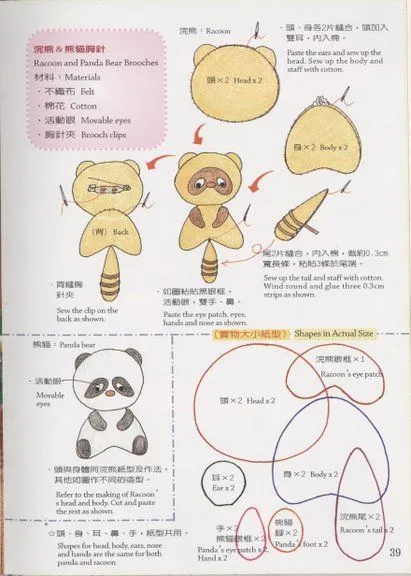 浣熊＆熊貓胸針
Racoon and Panda Bear Brooches
材料：Materials
・不織布 Felt
・棉花 Cotton
・活動眼 Movable eyes
・胸針夾 Brooch clips
浣熊：Racoon
頭×2 Head x 2
・頭、身各2片縫合，頭加入
雙耳，內入棉。
Paste the ears and sew up the
head. Sew up the body and
staff with cotton.
身×2 Body x 2
（背） Back
・背縫胸
針夾
Sew the clip on the
back as shown.
・如圖粘貼黑眼框，
活動眼，雙手、鼻。
Paste the eye patch, eyes,
hands and nose as shown.
尾2片縫合，內入棉，裁約0.3cm
寬長條，粘貼3條於尾端。
Sew up the tail and staff with cotton.
Wind round and glue three 0.3cm
strips as shown.
熊貓：Panda bear
・活動眼
Movable
eyes
・頭與身體同浣熊紙型及作法，
其他如圖作不同的造型。
Refer to the making of Racoon'
s head and body. Cut and paste
the rest as shown.
☆頭、身、耳、鼻、手，紙型共用。
Shapes for head, body, ears, nose
and hands are the same for both
panda and racoon.
【實物大小紙型】 Shapes in Actual Size
浣熊眼框×1
Racoon's eye patch
頭×2 Head x 2
耳×2
Ear x 2
身×2 Body x 2
手×2
熊貓眼框×2
Panda's eye patch x 2
Hand x 2
熊貓
腳×2
Panda's foot x 2
浣熊尾×2
Racoon's tail x 2
39